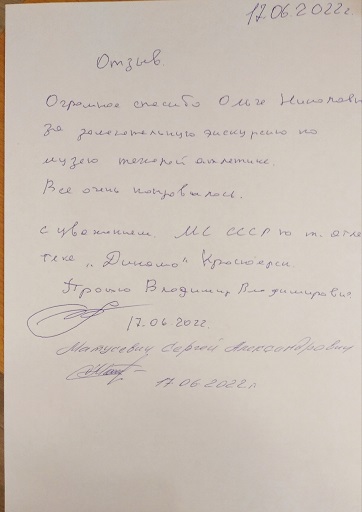 17.06.2022г.
Отзыв.
Огромное спасибо Ольге
за замечательную экскурсию по
музею тяжелой атлетике.
Все очень понравилось.
с уважением. МС СССР по т. атле
тике „Динамо" Красноярск.
Владимир Владимирович
17.06.2022.
Матусевич Сергей Александрович
17.06.2022г